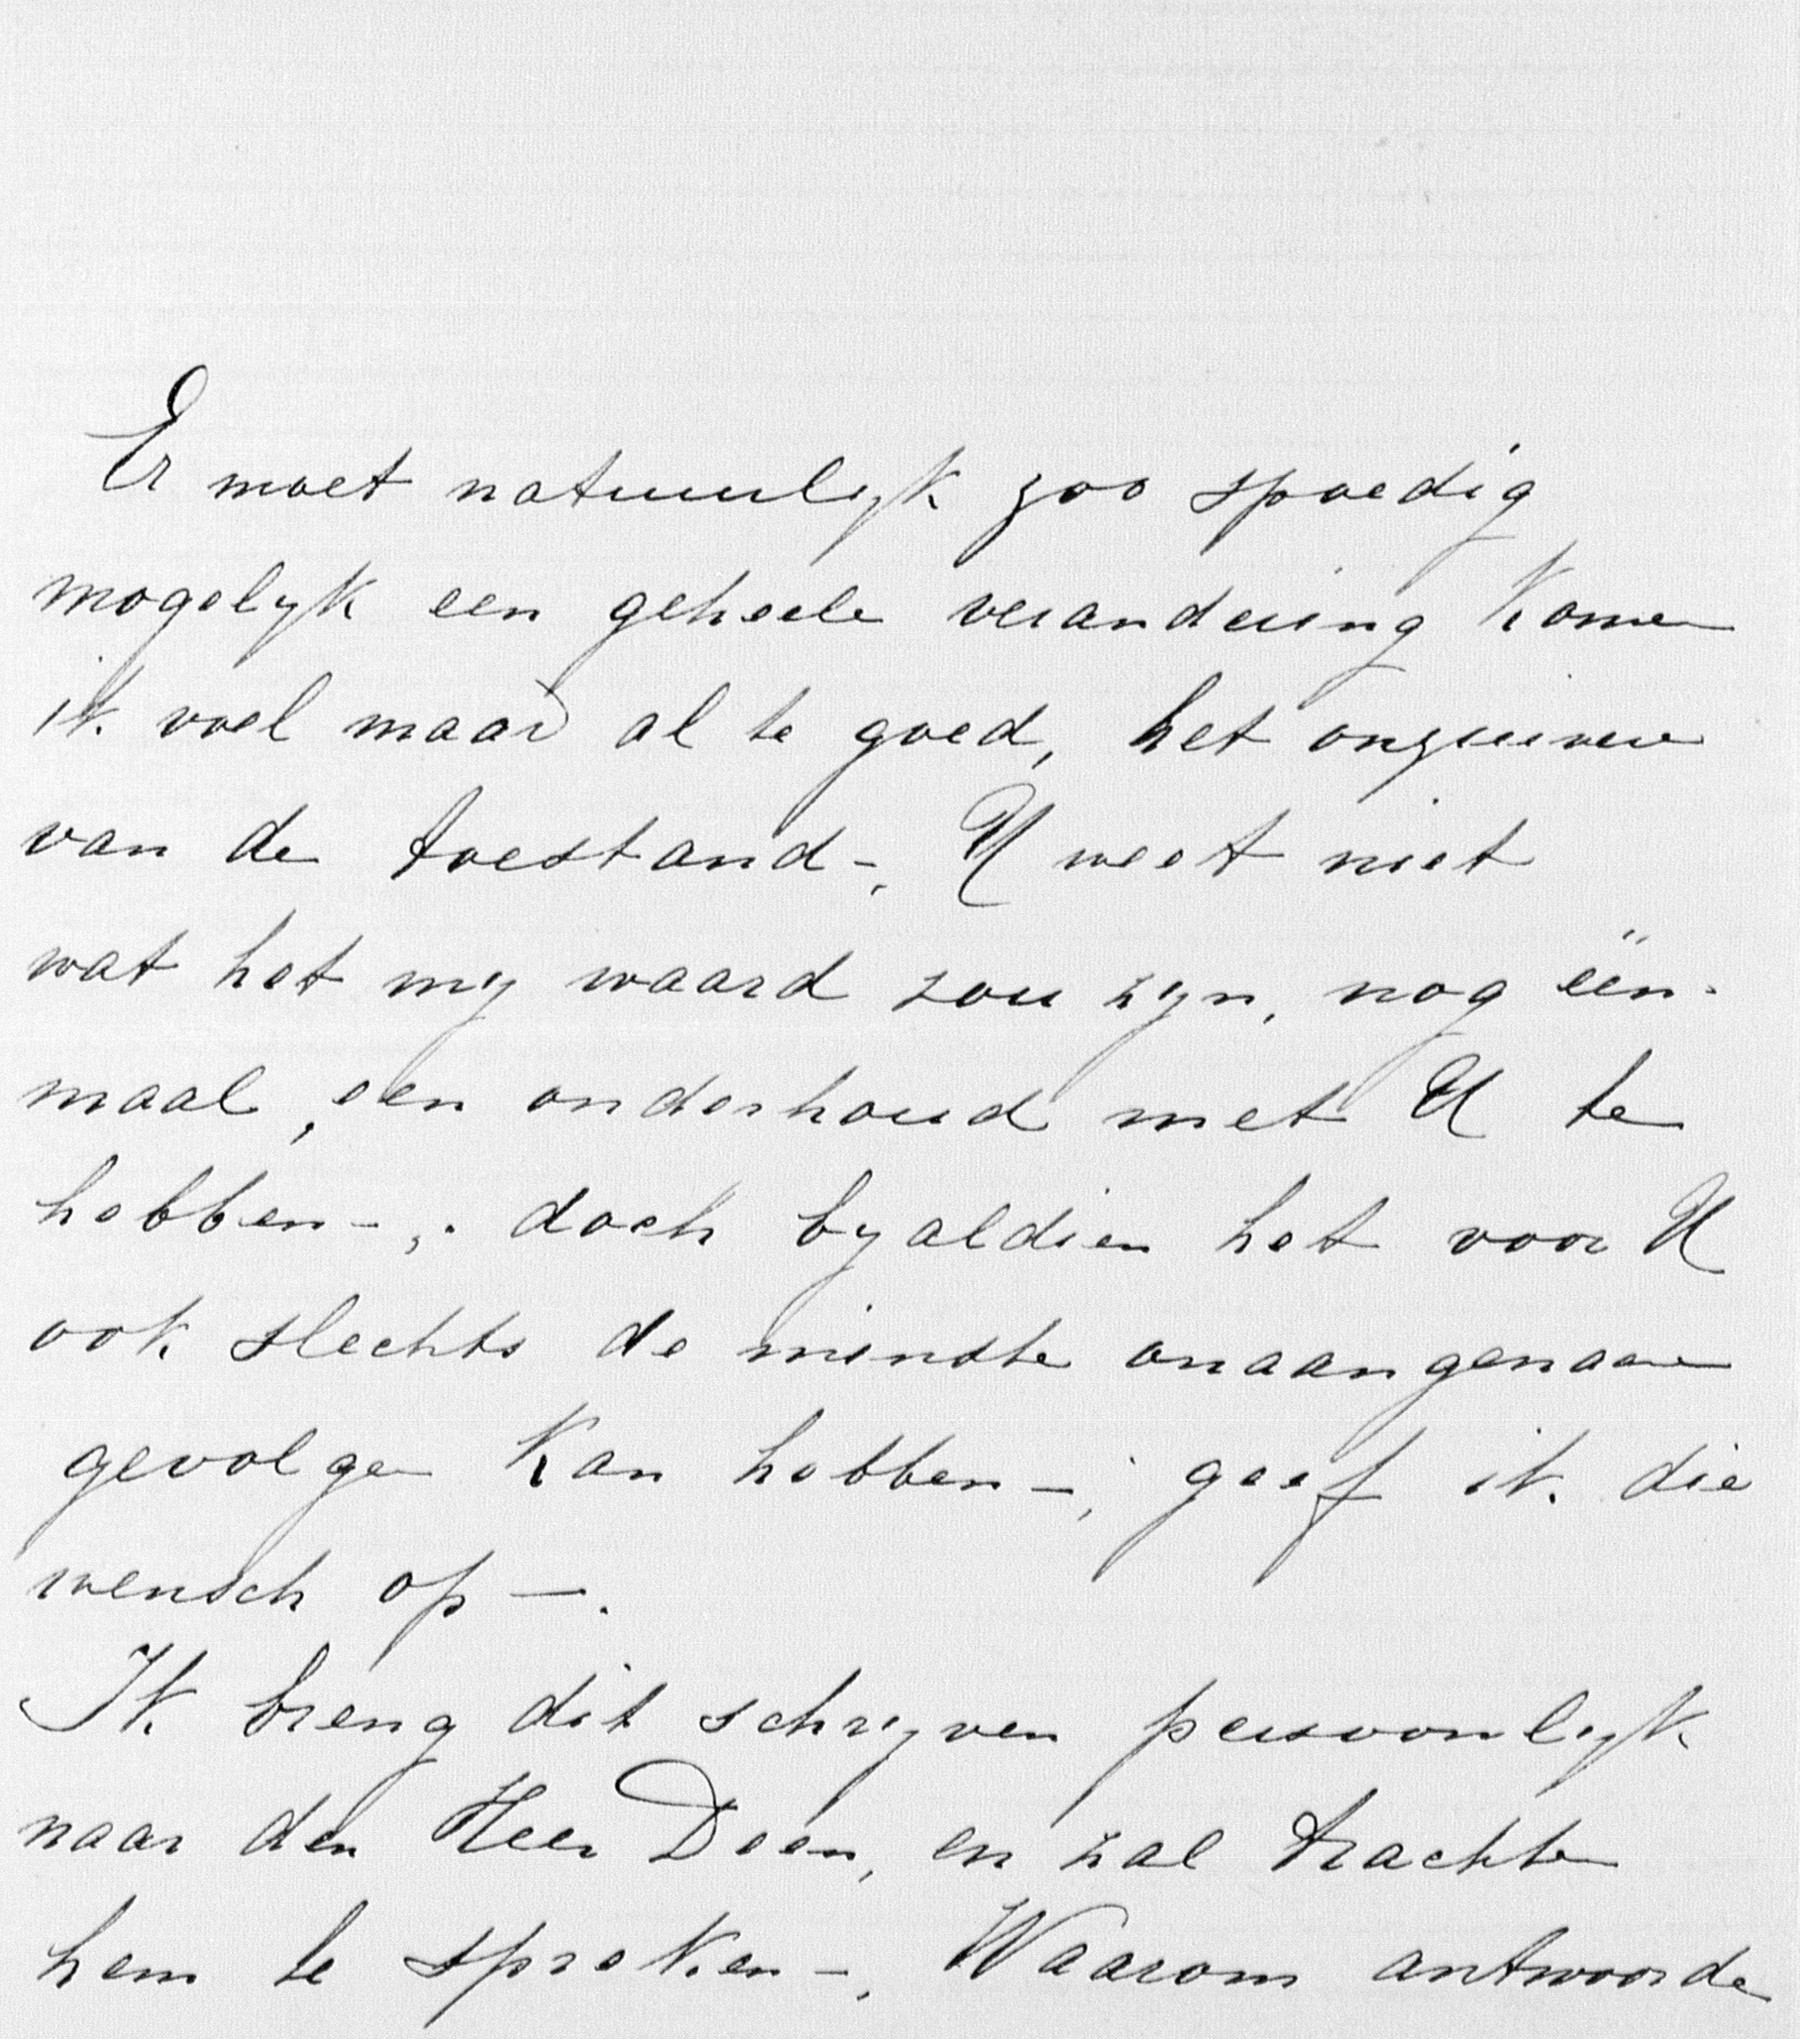 Er moet natuurlyk zoo spoedig
mogelyk een geheele verandering komen
ik voel maar al te goed, het onzuivere
van de toestand -, U weet niet
wat het my waard zou zyn, nog één-
maal, een onderhoud met U te
hebben -, . doch byaldien het voor U
ook slechts de minste onaangename
gevolgen kan hebben -, geef ik die
wensch op - .
Ik breng dit schryven persoonlyk
naar den Heer Deen, en zal trachten
hem te spreken -, Waarom antwoordde